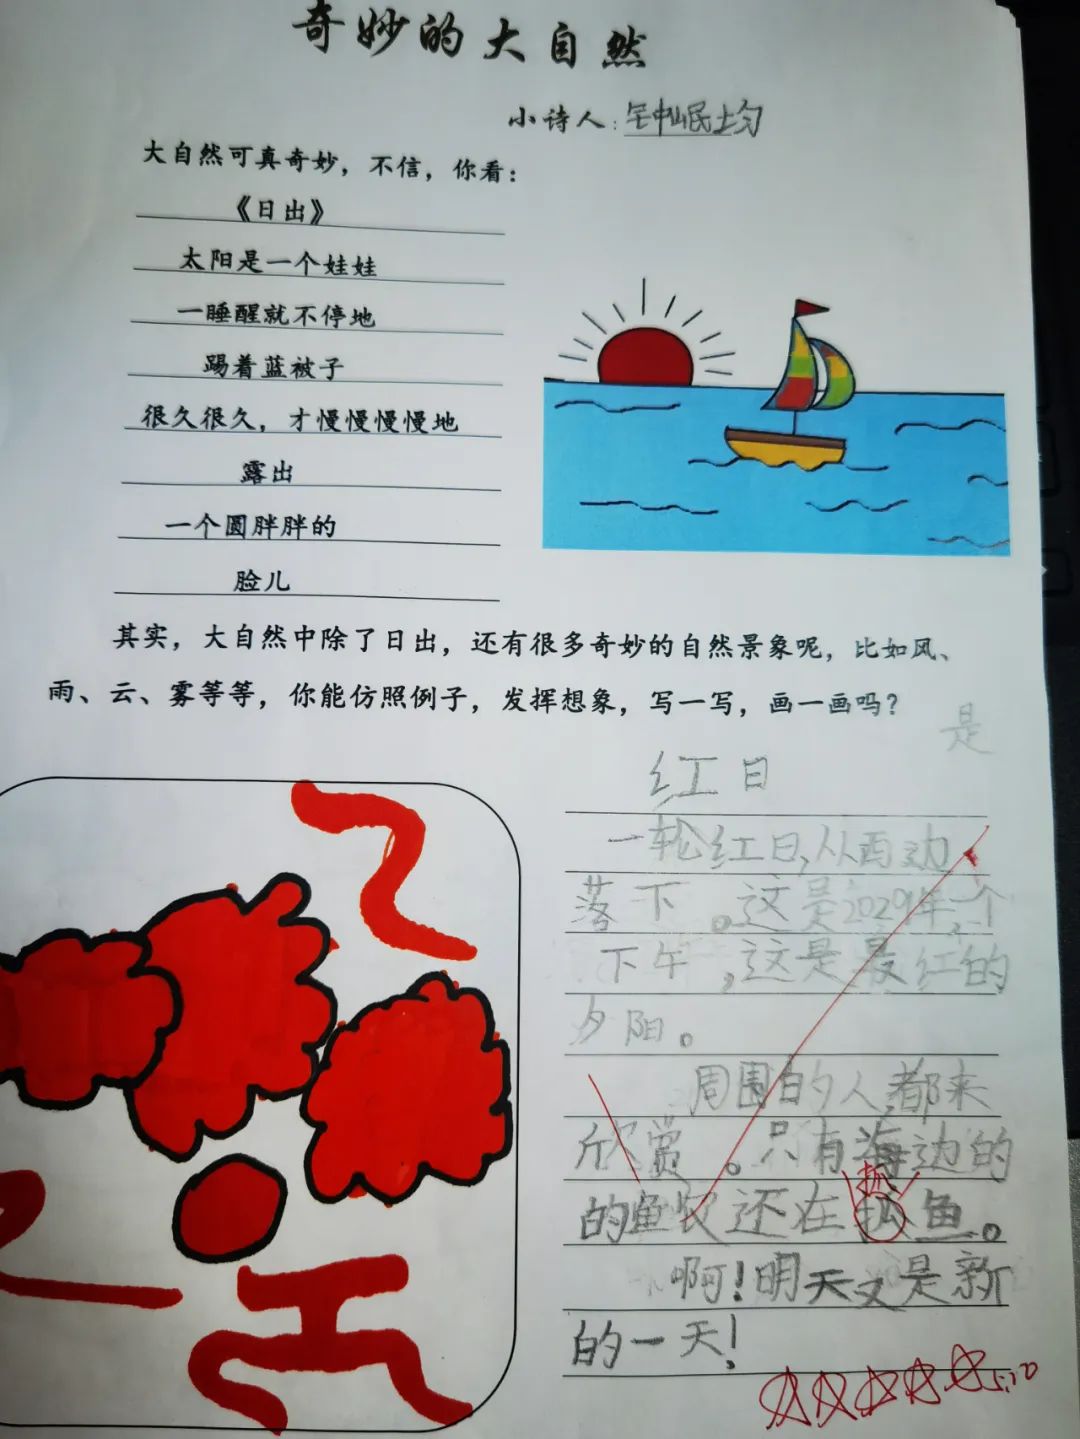 奇妙的大自然
小诗人:钟岷均
大自然可真奇妙，不信，你看：
《日出》
太阳是一个娃娃
一睡醒就不停地
踢着蓝被子
很久很久，才慢慢慢慢地
露出
一个圆胖胖的
脸儿
其实，大自然中除了日出，还有很多奇妙的自然景象呢，比如风、
雨、云、雾等等，你能仿照例子，发挥想象，写一写，画一画吗？
是
红日
一轮红日,从西边
落下。这是2029年,一个
下午,这是最红的
夕阳。
周围的人,都来
欣赏。只有海边的
的鱼农还在抓鱼。
啊!明天又是新
的一天!
5.20